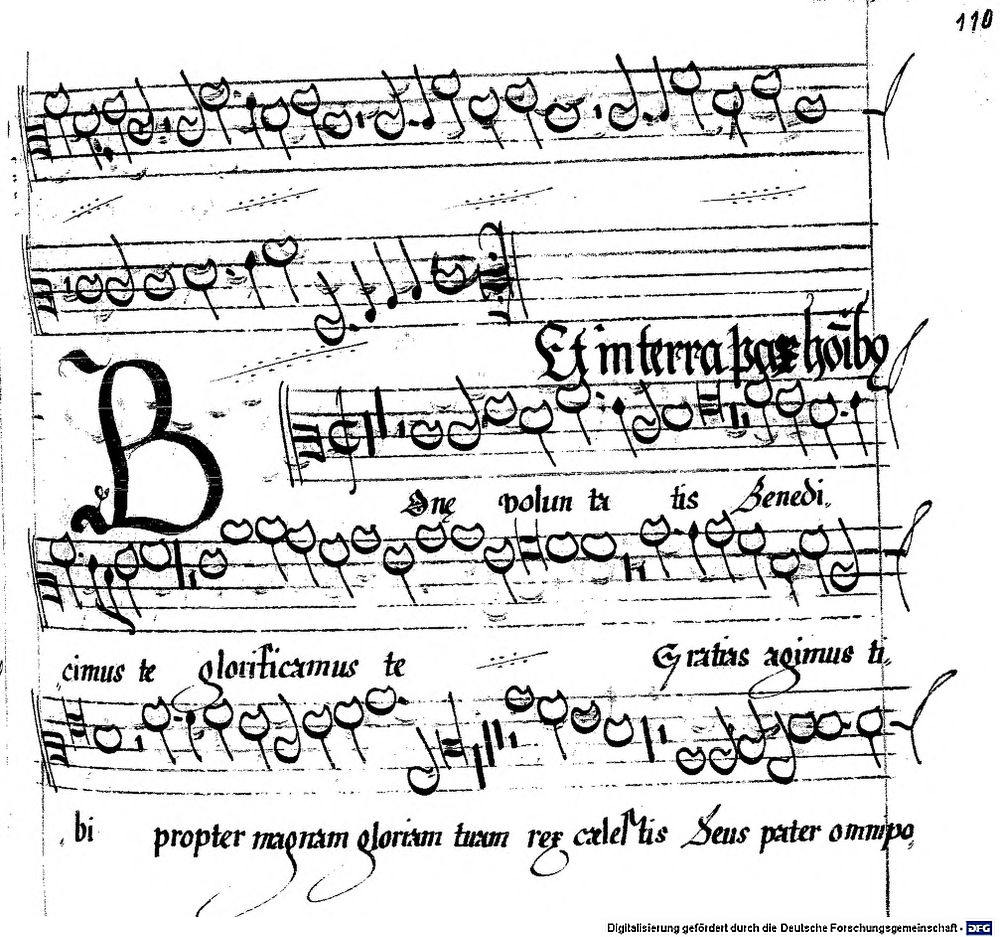 110
Et in terra pax hoībꝫ
B
One volun ta tis Benedi
cimus te glorificamus te Gratias agimus ti
bi propter magnam gloriam tuam rex cælestis Deus pater omnipo
Digitalisierung gefördert durch die Deutsche Forschungsgemeinschaft - DFG